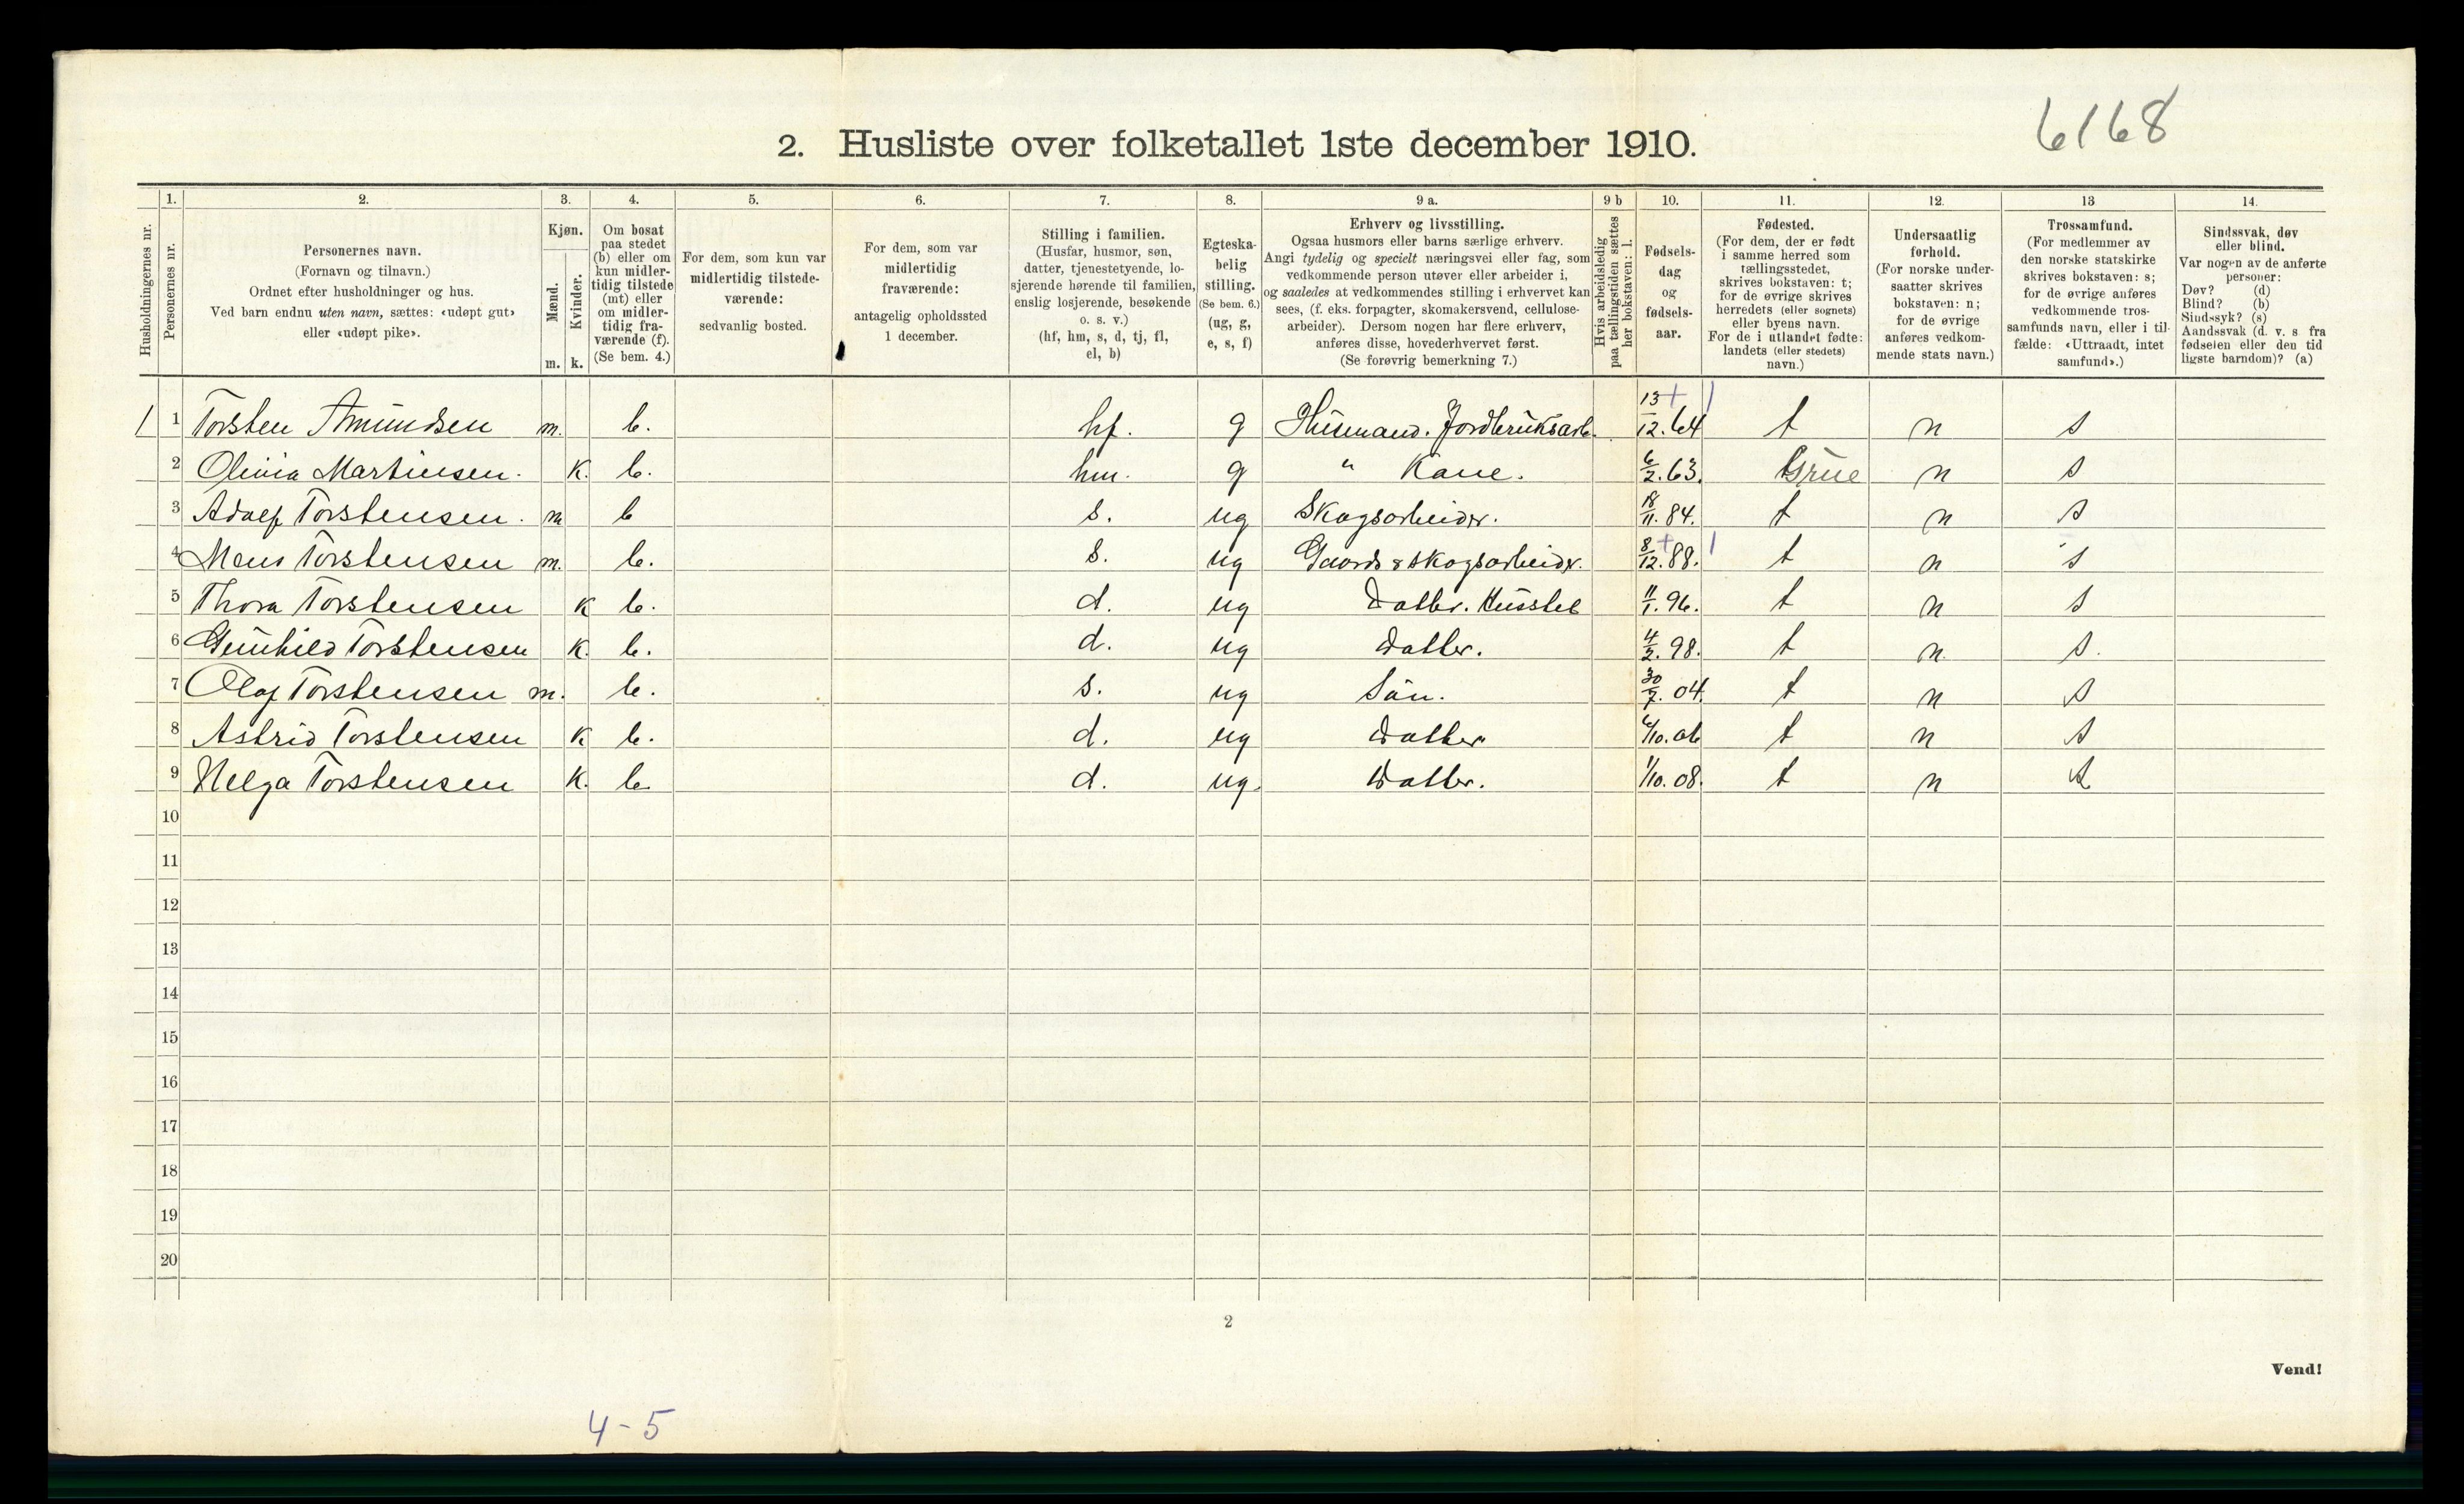 6168
2. Husliste over folketallet 1ste december 1910.
Husholdningernes nr.
1. Personernes nr.
2. Personernes navn.
(Fornavn og tilnavn.)
Ordnet efter husholdninger og hus.
Ved barn endnu uten navn, sættes: «udøpt gut»
eller «udøpt pike».
3. Kjøn.
Mænd. m.
Kvinder. k.
4. Om bosat
paa stedet
(b) eller om
kun midler-
tidig tilstede
(mt) eller
om midler-
tidig fra-
værende (f).
(Se bem. 4.)
5. For dem, som kun var
midlertidig tilstede-
værende:
sedvanlig bosted.
6. For dem, som var
midlertidig
fraværende:
antagelig opholdssted
1 december.
7. Stilling i familien.
(Husfar, husmor, søn,
datter, tjenestetyende, lo-
sjerende hørende til familien,
enslig losjerende, besøkende
o. s. v.)
(hf, hm, s, d, tj, fl,
el, b)
8. Egteska-
belig
stilling.
(Se bem. 6.)
(ug, g,
e, s, f)
9 a. Erhverv og livsstilling.
Ogsaa husmors eller barns særlige erhverv.
Angi tydelig og specielt næringsvei eller fag, som
vedkommende person utøver eller arbeider i,
og saaledes at vedkommendes stilling i erhvervet kan
sees, (f. eks. forpagter, skomakersvend, cellulose-
arbeider). Dersom nogen har flere erhverv,
anføres disse, hovederhvervet først.
(Se forøvrig bemerkning 7.)
9 b Hvis arbeidsledig
paa tællingstiden sættes
her bokstaven: l.
10. Fødsels-
dag
og
fødsels-
aar.
11. Fødested.
(For dem, der er født
i samme herred som
tællingsstedet,
skrives bokstaven: t;
for de øvrige skrives
herredets (eller sognets)
eller byens navn.
For de i utlandet fødte:
landets (eller stedets)
navn.)
12. Undersaatlig
forhold.
(For norske under-
saatter skrives
bokstaven: n;
for de øvrige
anføres vedkom-
mende stats navn.)
13 Trossamfund.
(For medlemmer av
den norske statskirke
skrives bokstaven: s;
for de øvrige anføres
vedkommende tros-
samfunds navn, eller i til-
fælde: «Uttraadt, intet
samfund».)
14. Sindssvak, døv
eller blind.
Var nogen av de anførte
personer:
Døv? (d)
Blind? (b)
Sindssyk? (s)
Aandssvak (d. v. s. fra
fødselen eller den tid-
ligste barndom)? (a)
1 1 Torsten Amundsen m. b. hf. g Husmand. Jordbruksarb. 13/12.64 t n s
2 Olivia Martinsen. K. b. hm. g " Kone. 6/2.63. Grue n s
3 Adolf Torstensen. m b s. ug Skogsarbeider. 18/11.84. t n s
4 Mons Torstensen m. b. s. ug Gaards & skogsarbeider. 8/12.88. t n s
5 Thora Torstensen K b. d. ug Datter. Husstel 11/1.96. t n s
6 Gunhild Torstensen K. b. d. ug Datter. 4/2.98. t n. s.
7 Olaf Torstensen m. b. s. ug Sön. 30/7.04. t n s
8 Astrid Torstensen K b. d. ug Datter 6/10.06 t n s
9 Helga Torstensen K. b. d. ug. Datter. 1/10.08. t n s
10
11
12
13
14
15
16
17
18
19
20
2
Vend!
4-5